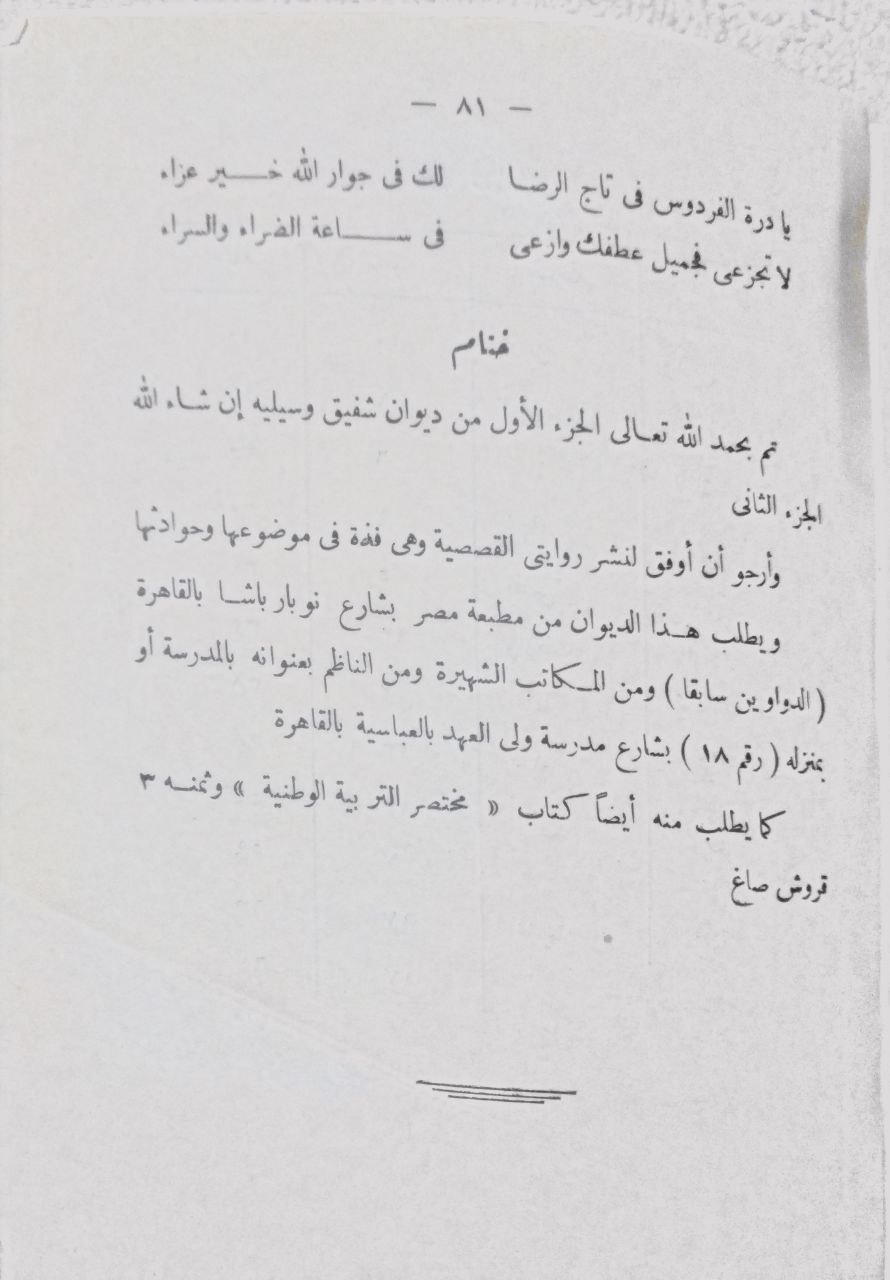 — ٨١ —
يا درة الفردوس فى تاج الرضا لك فى جوار الله خير عزاء
لا تجزعى فجميل عطفك وازعى فى ساعة الضراء والسراء
ختام
تم بحمد الله تعالى الجزء الأول من ديوان شفيق وسيليه إن شاء الله
الجزء الثانى
وأرجو أن أوفق لنشر روايتى القصصية وهى فذة فى موضوعها وحوادثها
ويطلب هذا الديوان من مطبعة مصر بشارع نوبار باشا بالقاهرة
( الدواوين سابقا ) ومن المكاتب الشهيرة ومن الناظم بعنوانه بالمدرسة أو
بمنزله ( رقم ١٨ ) بشارع مدرسة ولى العهد بالعباسية بالقاهرة
كما يطلب منه أيضاً كتاب « مختصر التربية الوطنية » وثمنه ٣
قروش صاغ